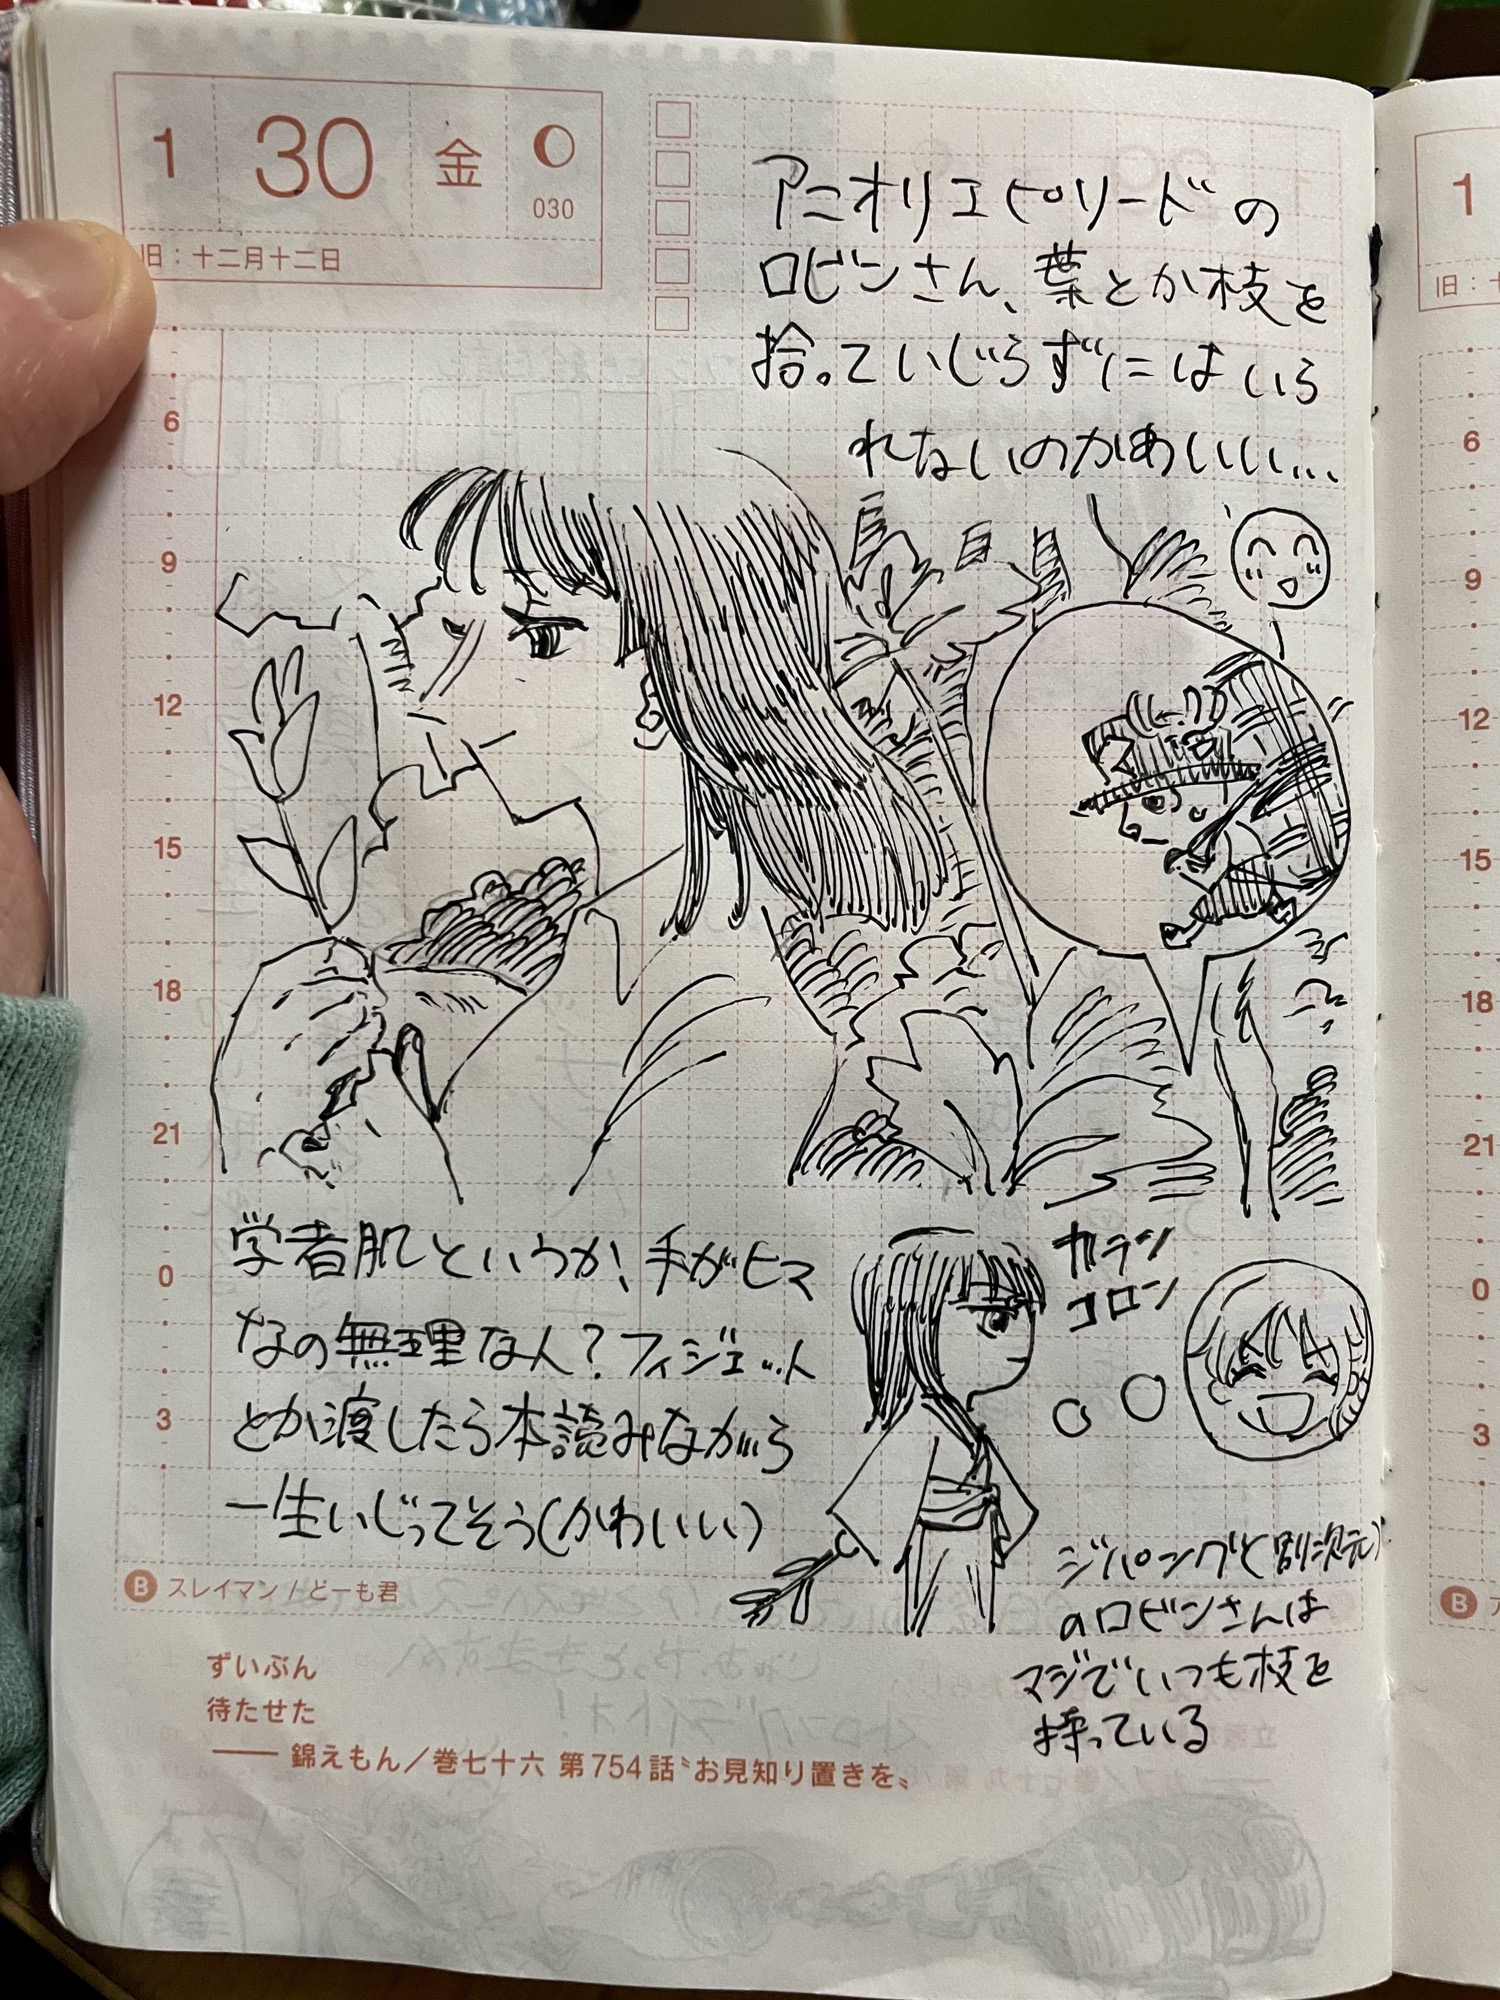 1 30 金
030
旧：十二月十二日
アニオリエピソードの
ロビンさん、葉とか枝を
拾っていじらずにはいら
れないのかあいいい…
6
9
12
15
18
21
0
3
学者肌というか、手がヒマ
なの無理な人？フィジェット
とか渡したら本読みながら
一生いじってそう(かわいい)
カラン
コロン
ジパング(別次元)
のロビンさんは
マジでいつも枝を
持っている
B スレイマン / どーも君
ずいぶん
待たせた
—— 錦えもん／巻七十六 第754話〝お見知り置きを〟
1
旧：十
6
9
12
15
18
21
0
3
B